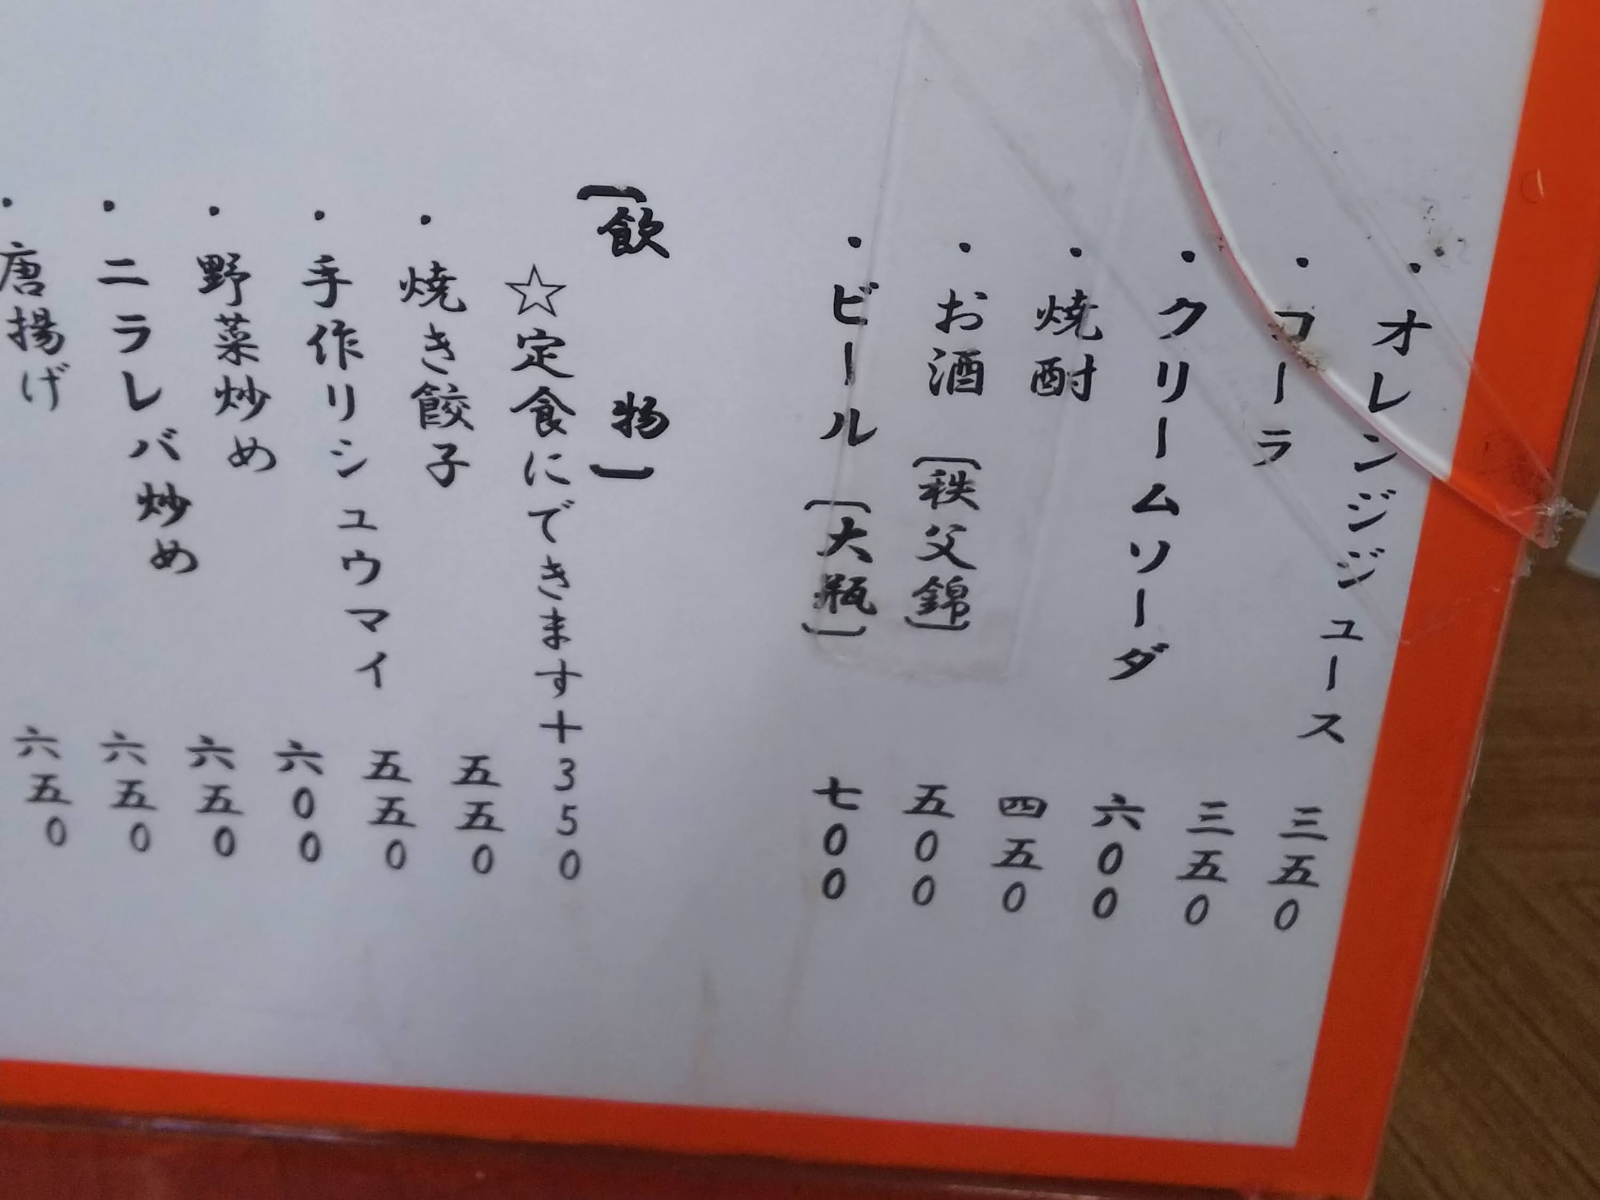 六五0
・唐揚げ 六五0
・ニラレバ炒め 六五0
・野菜炒め 六00
・手作りシュウマイ 五五0
・焼き餃子 五五0
☆定食にできます+350
【飲 物】
・ビール〔大瓶〕 七00
・お酒〔秩父錦〕 五00
・焼酎 四五0
・クリームソーダ 六00
・コーラ 三五0
・オレンジジュース 三五0